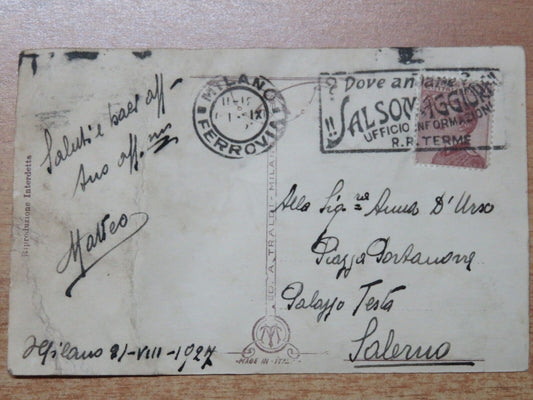 MILANO
FERROVIA
? Dove andare ?
!! SALSOMAGGIORE
UFFICIO INFORMAZIONI
R.R. TERME
Saluti e baci aff.
Suo aff.mo
Matteo
Milano 31-VIII-1927
Riproduzione Interdetta
ED. A. TRALDI - MILANO
MADE IN ITALY
Alla Sig.ra Anna D'Urso
Piazza Portanova
Palazzo Testa
Salerno